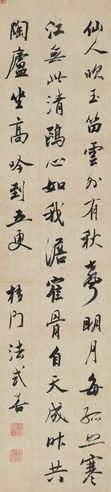 仙人吹玉笛雲外有秋聲明月每孤寒
江無此清鷗心如我澹寉骨自天成昨共
陶廬坐高吟到五更 梧門法式善